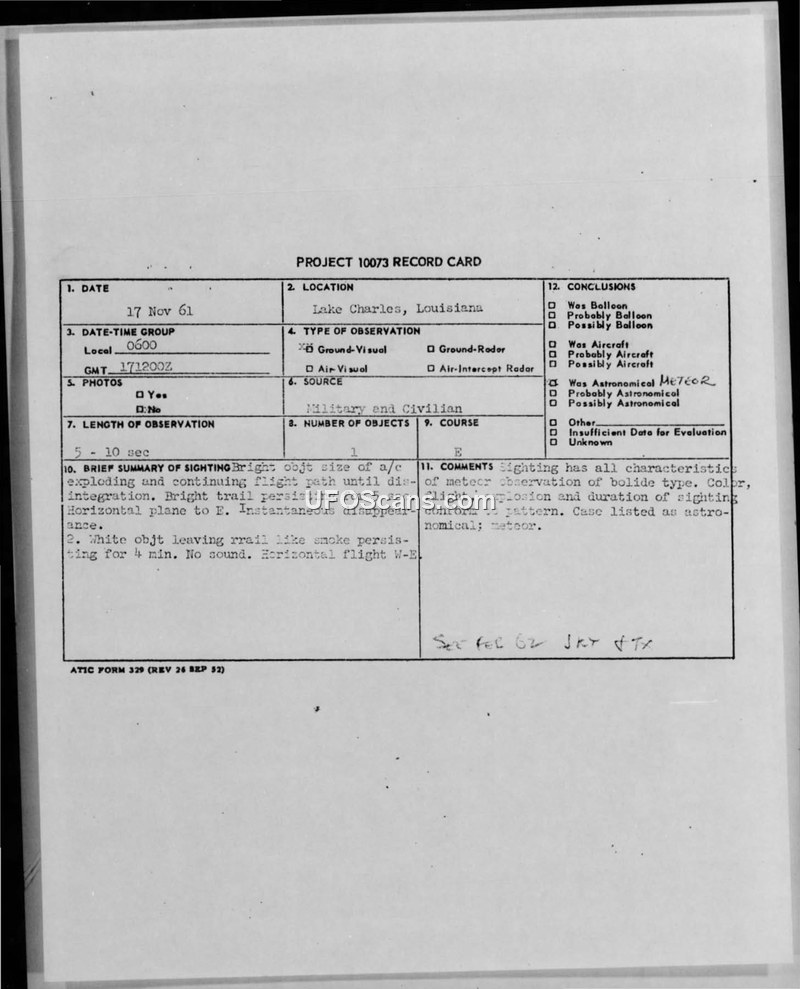 PROJECT 10073 RECORD CARD
1. DATE
17 Nov 61
2. LOCATION
Lake Charles, Louisiana
12. CONCLUSIONS
Was Balloon
Probably Balloon
Possibly Balloon
Was Aircraft
Probably Aircraft
Possibly Aircraft
Was Astronomical METEOR
Probably Astronomical
Possibly Astronomical
Other
Insufficient Data for Evaluation
Unknown
3. DATE-TIME GROUP
Local 0600
GMT 171200Z
4. TYPE OF OBSERVATION
Ground-Visual
Ground-Radar
Air-Visual
Air-Intercept Radar
5. PHOTOS
Yes
No
6. SOURCE
Military and Civilian
7. LENGTH OF OBSERVATION
5 - 10 sec
8. NUMBER OF OBJECTS
1
9. COURSE
E
10. BRIEF SUMMARY OF SIGHTING Bright objt size of a/c
exploding and continuing flight path until dis-
integration. Bright trail
Horizontal plane to E. Instantaneous disappear-
ance.
2. White objt leaving rrail like smoke persis-
ting for 4 min. No sound. Horizontal flight W-E
11. COMMENTS Sighting has all characteristics
of meteor observation of bolide type. Color,
flight explosion and duration of sighting
conform to pattern. Case listed as astro-
nomical; meteor.
See Feb 62
UFOScans.com
ATIC FORM 329 (REV 26 SEP 52)